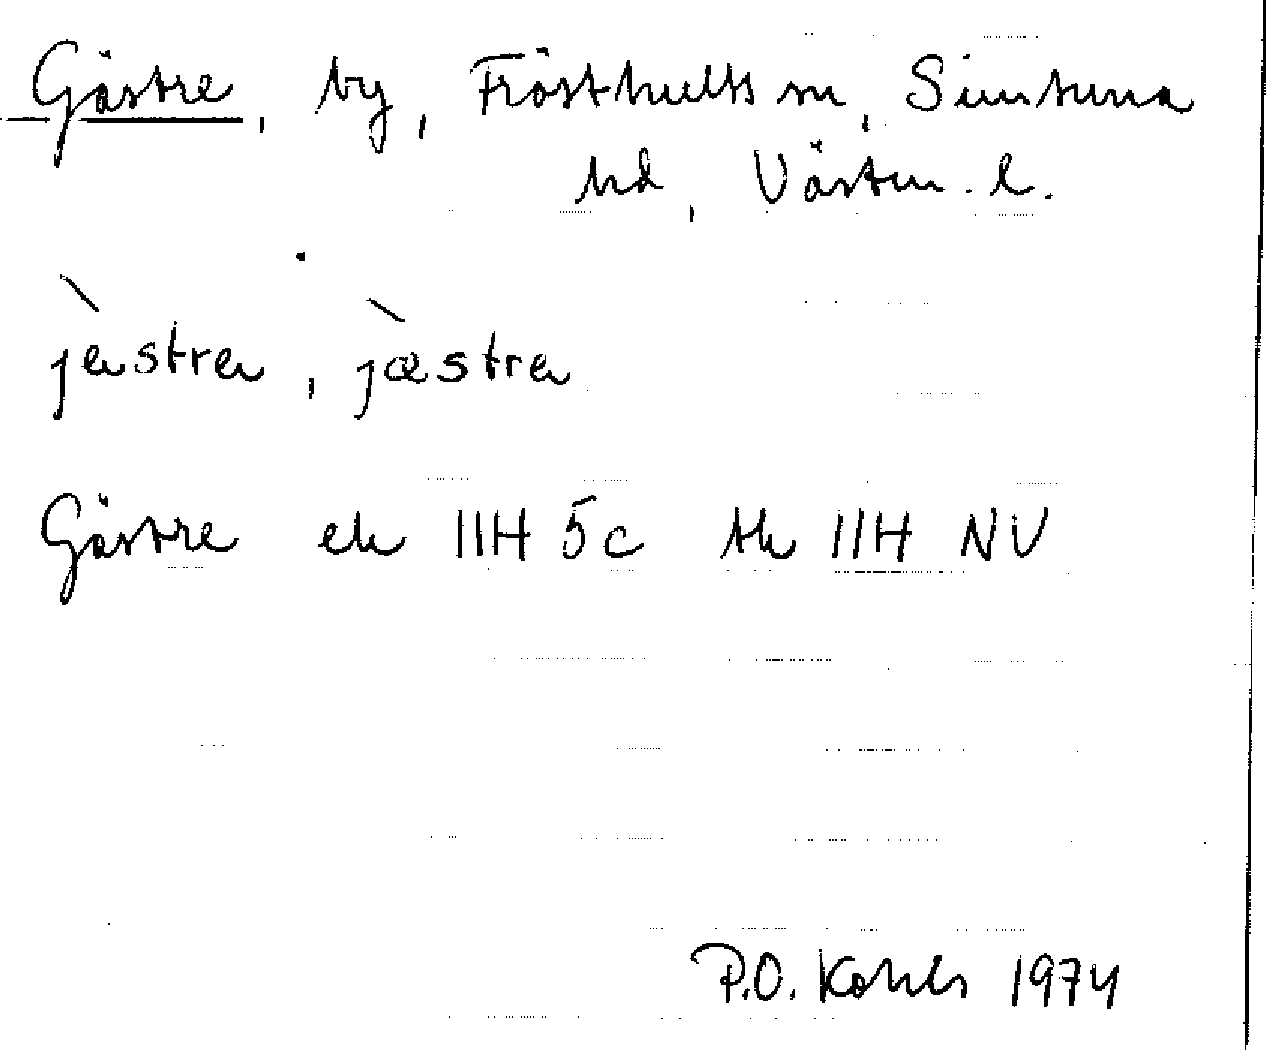 Gästre, by, Frösthults sn, Simtuna
hd, Västm. l.
jästrä, jæsträ
Gästre ek 11H 5c tk 11H NV
P.O. 1974